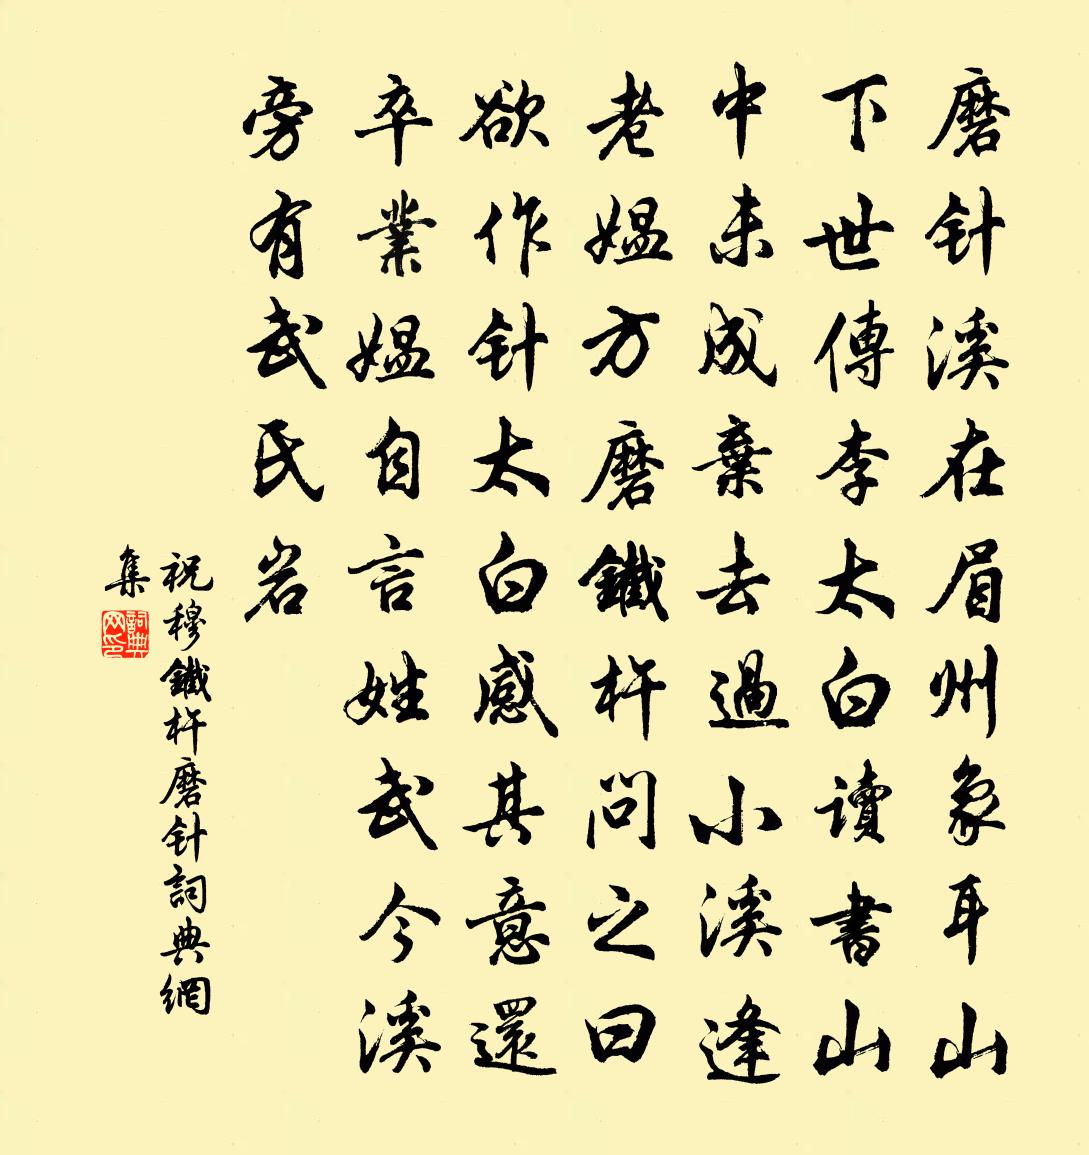 磨针溪在眉州象耳山
下世傳李太白讀書山
中未成棄去過小溪逢
老媪方磨鐵杵問之曰
欲作针太白感其意還
卒業媪自言姓武今溪
旁有武氏岩
祝穆鐵杵磨针詞典網
集
詞典
网印